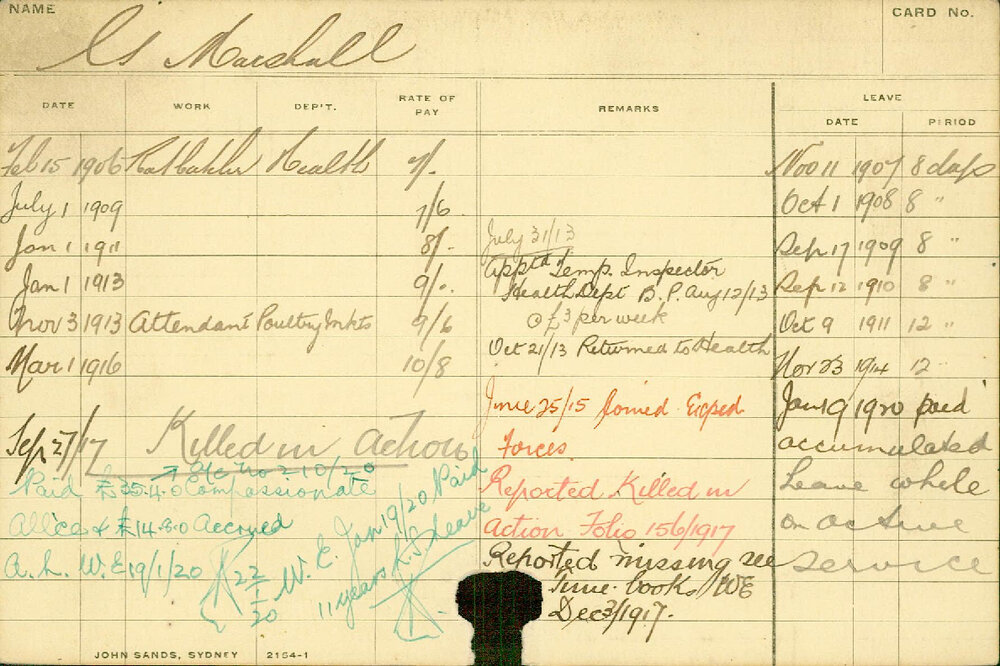 NAME
CARD No.
G Marshall
DATE WORK DEP'T. RATE OF PAY REMARKS LEAVE
DATE PERIOD
Feb 15 1906 Ratcatcher Health 7/. Nov 11 1907 8 days
July 1 1909 7/6 Oct 1 1908 8 "
Jan 1 1911 8/. July 31/13 Sep 17 1909 8 "
Jan 1 1913 9/. Apptd Temp. Inspector Sep 12 1910 8 "
Health Dept B.P. Aug 12/13
Nov 3 1913 Attendant Poultry Mkts 9/6 @ £3 per week Oct 9 1911 12 "
Mar 1 1916 10/8 Oct 21/13 Returned to Health Nov 23 1914 12
June 25/15 Joined Exped Jan 19 1920 paid
Sep 27/17 Killed in action Forces accumulated
210/20
Paid £35.4.0 Compassionate Reported Killed in Leave while
Allce & £14.8.0 Accrued Action Folio 156/1917 on active
A.L. W.E 19/1/20 Reported missing see service
Time books WE
Dec 3/1917.
22/1/20
W.E. Jan 19/20 Paid
11 years Leave
JOHN SANDS, SYDNEY 2154-1